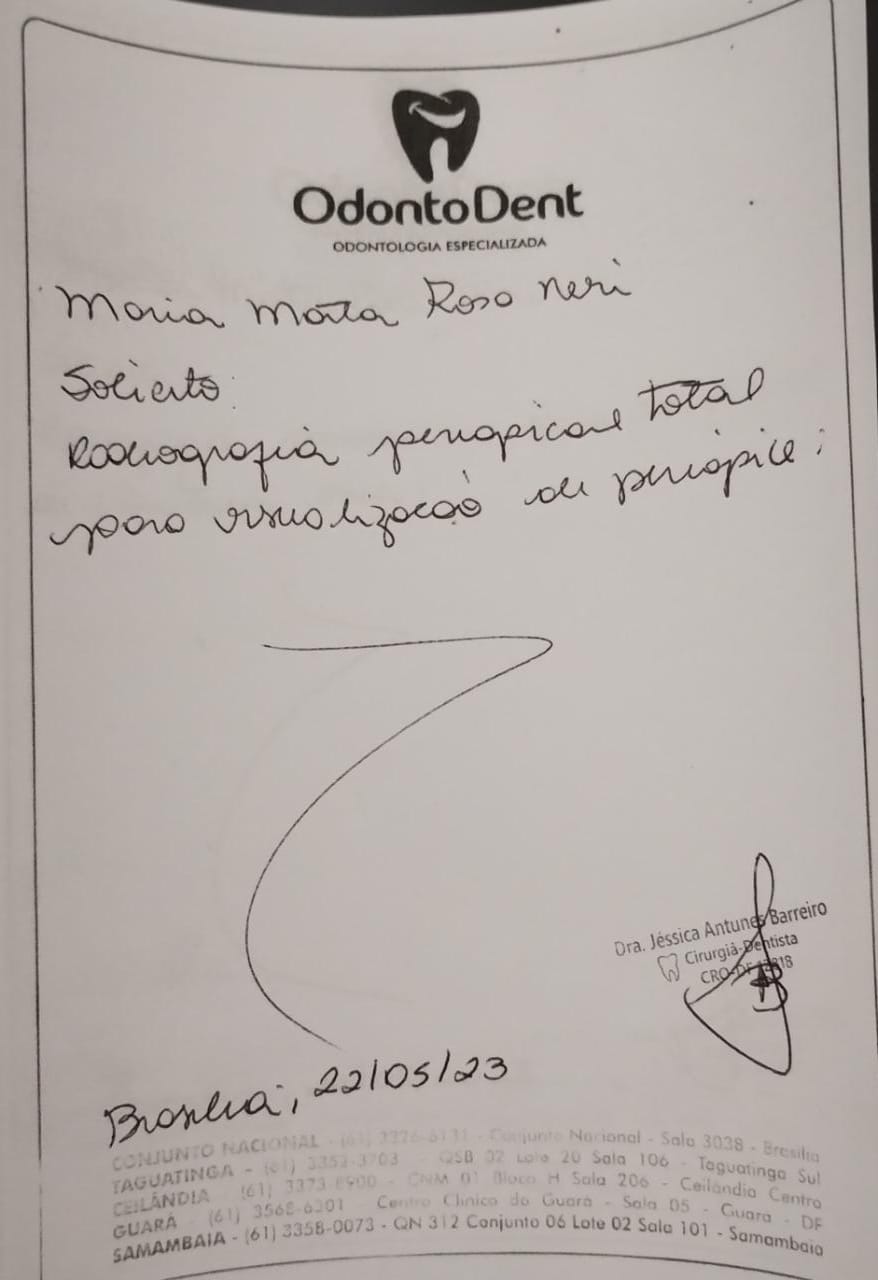 OdontoDent
ODONTOLOGIA ESPECIALIZADA
Maria Marta Rosa Neri
Solicito:
Radiografia periapical total
para visualização de periápice;
Dra. Jéssica Antunes Barreiro
Cirurgiã-Dentista
CRO-DF
Brasília, 22/05/23
CONJUNTO NACIONAL - (61) - Conjunto Nacional - Sala 3038 - Brasília
TAGUATINGA - (61) 3352-3703 - QSB 02 Lote 20 Sala 106 - Taguatinga Sul
CEILÂNDIA (61) 3373-8900 - CNM 01 Bloco H Sala 206 - Ceilândia Centro
GUARÁ - (61) 3568-6201 - Centro Clínico do Guará - Sala 05 - Guará - DF
SAMAMBAIA - (61) 3358-0073 - QN 312 Conjunto 06 Lote 02 Sala 101 - Samambaia